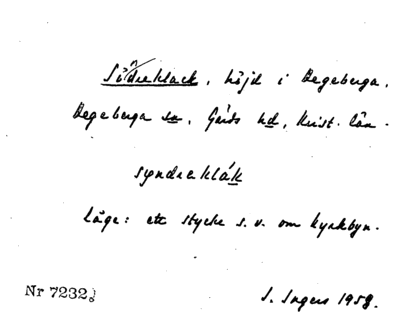 Södreklack, höjd i Degeberga.
Degeberga sn, Gärds hd, Krist. län.
syndreklák
Läge: ett stycke s.v. om kyrkbyn.
Nr 7232.
S. Ingers 1958.